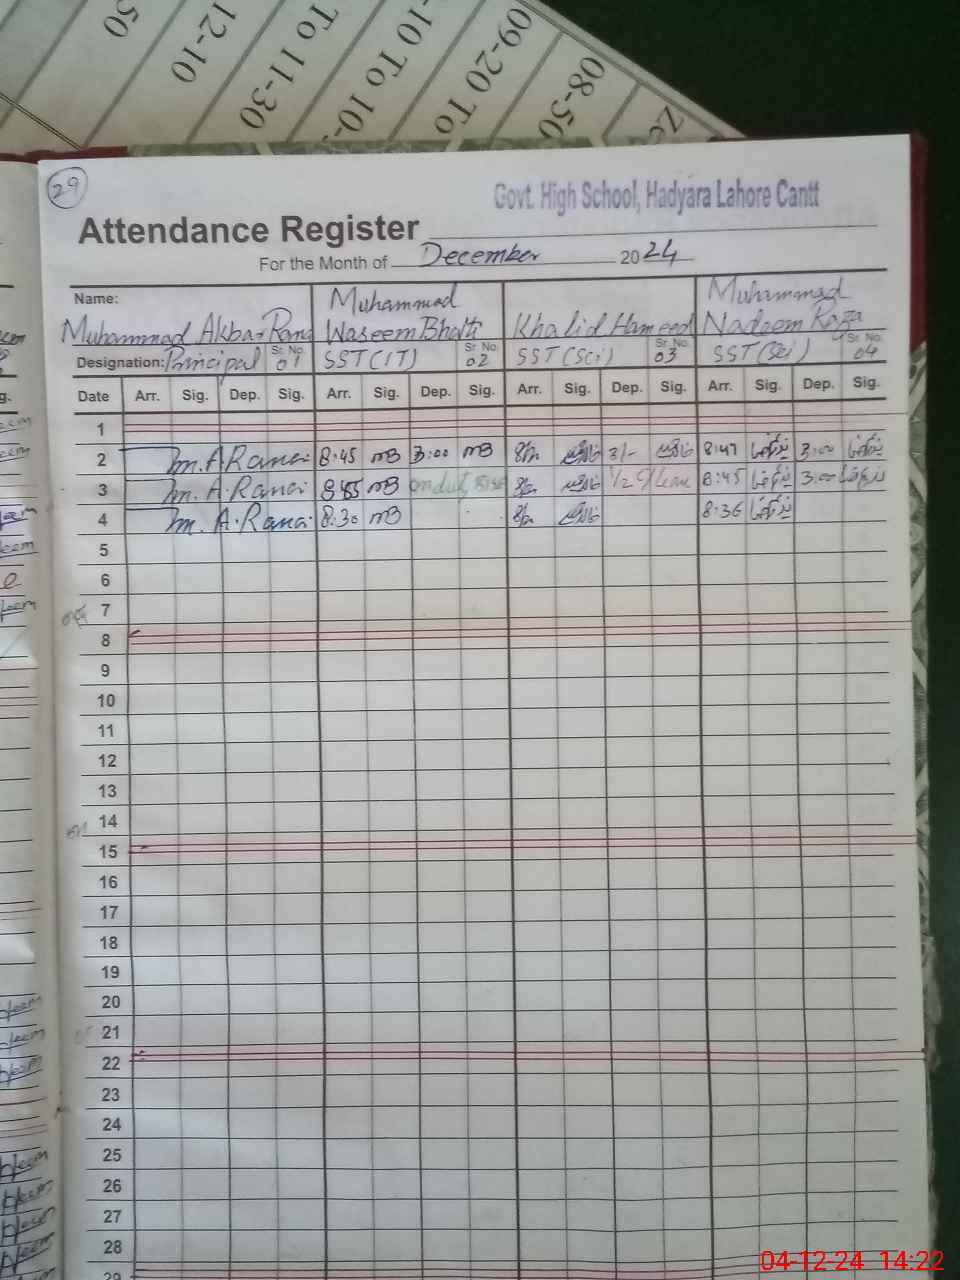 50
12-10
To 11-30
-10 To 10-
09-20 To
08-50
29
Govt. High School, Hadyara Lahore Cantt
Attendance Register
For the Month of December 2024
Name: Muhammad Akbar Rana Muhammad Waseem Bhatti Khalid Hameed Muhammad Nadeem Raza
Designation: Principal Sr. No. 01 SST (IT) Sr. No. 02 SST (Sci) Sr. No. 03 SST (Sci) Sr. No. 04
Date Arr. Sig. Dep. Sig. Arr. Sig. Dep. Sig. Arr. Sig. Dep. Sig. Arr. Sig. Dep. Sig.
1
2 M. A Rana 8:45 MB 3:00 MB 3/- 8:47 3:00
3 M. A. Rana 8:45 MB on duty 1/2 C/leave 8:45 3:00
4 M. A. Rana 8:30 MB 8:36
5
6
7
8
9
10
11
12
13
14
15
16
17
18
19
20
21
22
23
24
25
26
27
28
29
04-12-24 14:22